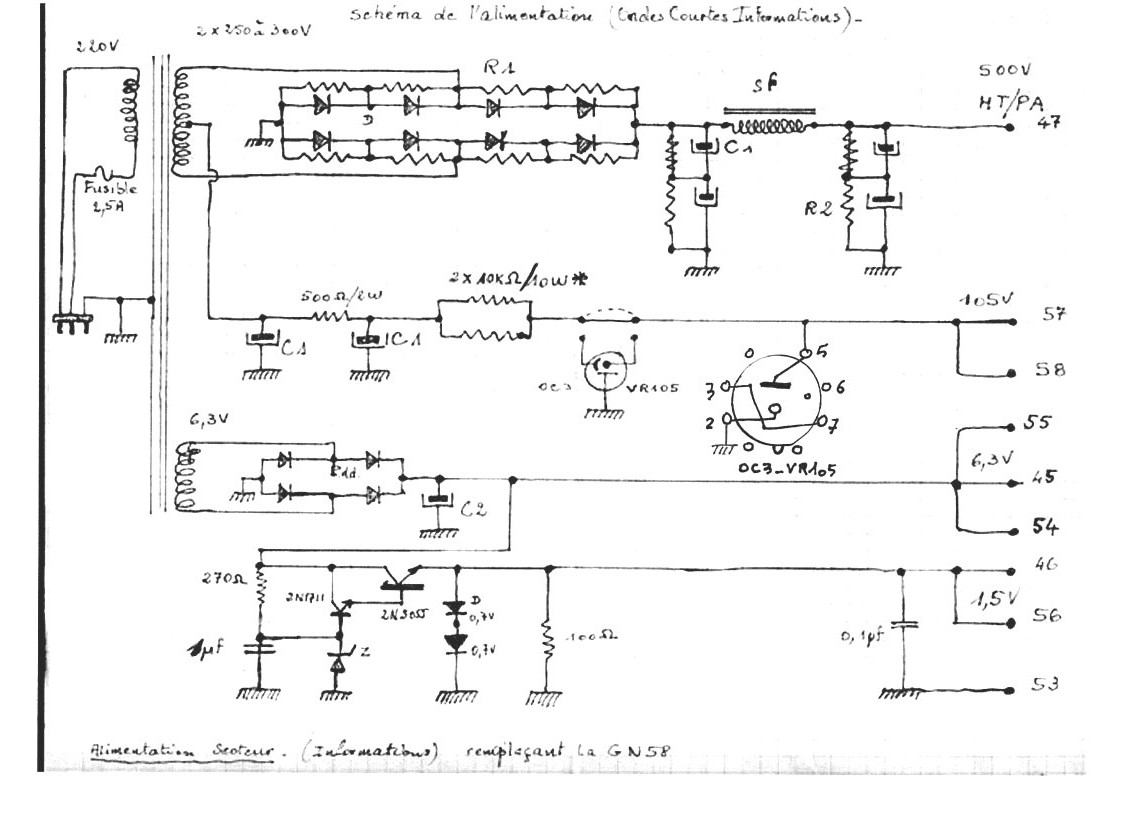 Schéma de l'alimentation (Ondes Courtes Informations)-
220V
2 x 250 à 300V
R1
D
Sf
500V
HT/PA
47
C1
R2
Fusible
2,5A
500Ω/2W
2 x 10KΩ/10W*
C1
C1
OC3
VR105
5
3
6
2
7
OC3-VR105
105V
57
58
6,3V
C2
55
6,3V
45
54
270Ω
2N1711
2N3055
1µf
Z
D
0,7V
0,7V
100Ω
0,1µf
46
1,5V
56
53
Alimentation Secteur. (Informations) remplaçant la GN58